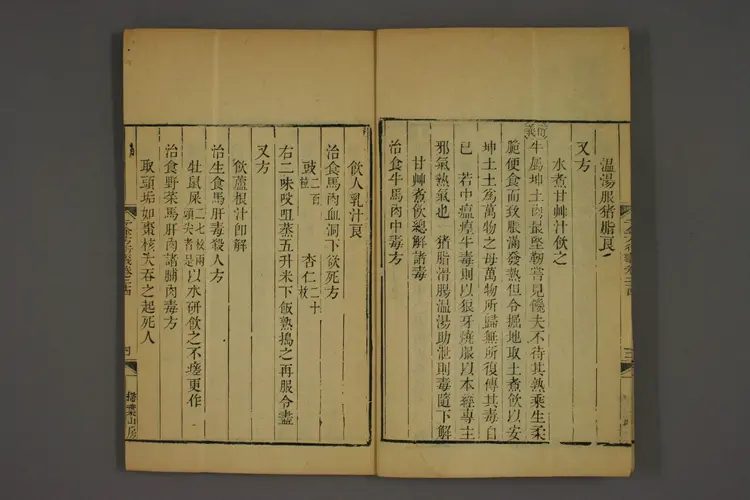 溫湯服猪脂良
又方
水煮甘艸汁飲之
衍義
牛屬坤土肉最堅韌嘗見儱夫不待其熟乘生柔
脆便食而致脹滿發熱但令掘地取土煮飲以安
坤土土爲萬物之母萬物所歸無所復傳其毒自
已　若中瘟瘴牛毒則以狼牙燒服以本經專主
邪氣熱氣也　猪脂滑腸溫湯助泄則毒隨下解
甘艸煮飲總解諸毒
治食牛馬肉中毒方
飲人乳汁良
治食馬肉血洞下欲死方
豉二百粒　杏仁二十枚
右二味㕮咀蒸五升米下飯熟搗之再服令盡
又方
飲蘆根汁即解
治生食馬肝毒殺人方
牡鼠屎二七枚兩頭尖者是以水研飲之不瘥更作
治食野菜馬肝肉諸脯肉毒方
取頭垢如棗核大吞之起死人
千金方衍義卷之二十四
掃葉山房